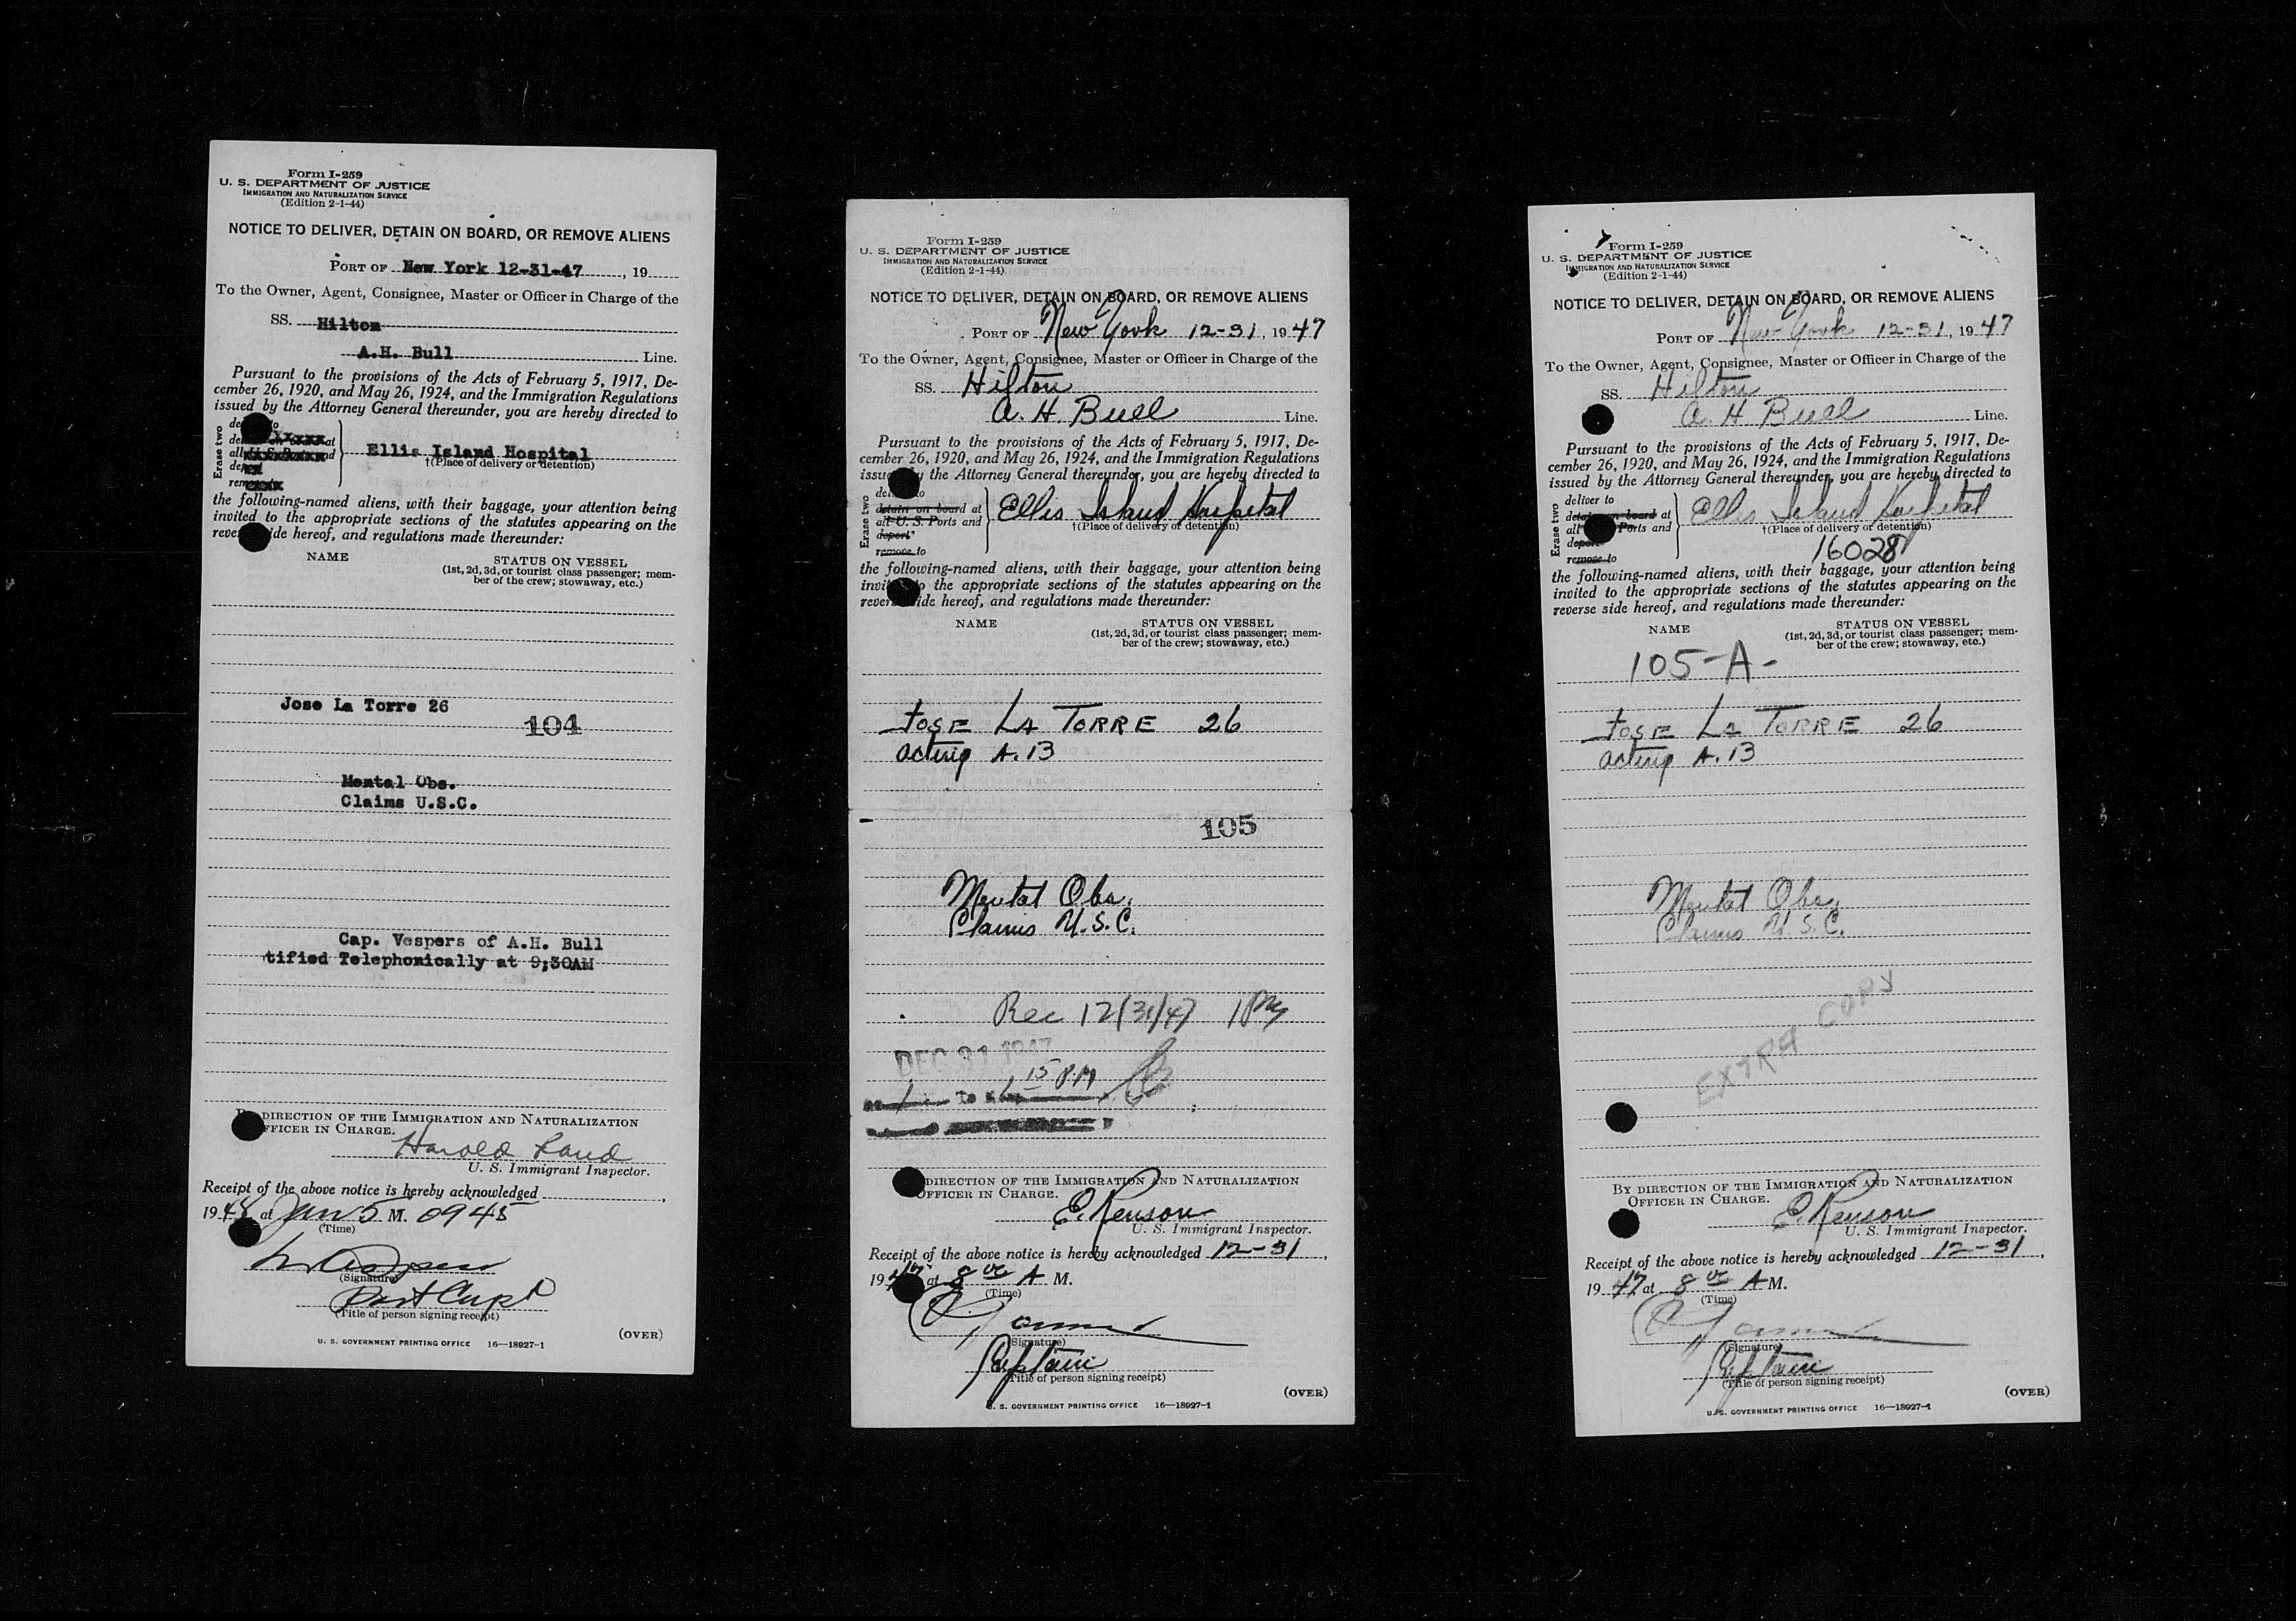 Form I-259
U. S. DEPARTMENT OF JUSTICE
IMMIGRATION AND NATURALIZATION SERVICE
(Edition 2-1-44)
NOTICE TO DELIVER, DETAIN ON BOARD, OR REMOVE ALIENS
PORT OF New York 12-31-47, 19
To the Owner, Agent, Consignee, Master or Officer in Charge of the
SS. Hilton
A.H. Bull Line.
Pursuant to the provisions of the Acts of February 5, 1917, De-
cember 26, 1920, and May 26, 1924, and the Immigration Regulations
issued by the Attorney General thereunder, you are hereby directed to
Erase two
Ellis Island Hospital
†(Place of delivery or detention)
the following-named aliens, with their baggage, your attention being
invited to the appropriate sections of the statutes appearing on the
hereof, and regulations made thereunder:
NAME STATUS ON VESSEL
(1st, 2d, 3d, or tourist class passenger; mem-
ber of the crew; stowaway, etc.)
Jose La Torre 26
104
Mental Obs.
Claims U.S.C.
Cap. Vespers of A.H. Bull
tified Telephonically at 9;30AM
DIRECTION OF THE IMMIGRATION AND NATURALIZATION
FFICER IN CHARGE.
Harold
U. S. Immigrant Inspector.
Receipt of the above notice is hereby acknowledged ,
1948 at Jan 5 M. 0945
(Time)
(Signature)
Port Capt
(Title of person signing receipt)
(OVER)
U. S. GOVERNMENT PRINTING OFFICE 16—18927-1
Form I-259
U. S. DEPARTMENT OF JUSTICE
IMMIGRATION AND NATURALIZATION SERVICE
(Edition 2-1-44)
NOTICE TO DELIVER, DETAIN ON BOARD, OR REMOVE ALIENS
PORT OF New York 12-31, 1947
To the Owner, Agent, Consignee, Master or Officer in Charge of the
SS. Hilton
A. H. Bull Line.
Pursuant to the provisions of the Acts of February 5, 1917, De-
cember 26, 1920, and May 26, 1924, and the Immigration Regulations
the Attorney General thereunder, you are hereby directed to
Erase two
detain on board at
all U. S. Ports and
deport
remove to
Ellis Island Hospital
†(Place of delivery or detention)
the following-named aliens, with their baggage, your attention being
the appropriate sections of the statutes appearing on the
hereof, and regulations made thereunder:
NAME STATUS ON VESSEL
(1st, 2d, 3d, or tourist class passenger; mem-
ber of the crew; stowaway, etc.)
JOSE LA TORRE 26
acting A.13
105
Mental Obs.
Claims U.S.C.
Rec 12/31/47 1PM
DEC 31 1947
15 P.M
DIRECTION OF THE IMMIGRATION AND NATURALIZATION
OFFICER IN CHARGE.
E. Renson
U. S. Immigrant Inspector.
Receipt of the above notice is hereby acknowledged 12-31,
1947 at 8 00 A M.
(Time)
(Signature)
Captain
(Title of person signing receipt)
(OVER)
U. S. GOVERNMENT PRINTING OFFICE 16—18927-1
Form I-259
U. S. DEPARTMENT OF JUSTICE
IMMIGRATION AND NATURALIZATION SERVICE
(Edition 2-1-44)
NOTICE TO DELIVER, DETAIN ON BOARD, OR REMOVE ALIENS
PORT OF New York 12-31, 1947
To the Owner, Agent, Consignee, Master or Officer in Charge of the
SS. Hilton
A. H Bull Line.
Pursuant to the provisions of the Acts of February 5, 1917, De-
cember 26, 1920, and May 26, 1924, and the Immigration Regulations
issued by the Attorney General thereunder, you are hereby directed to
Erase two
deliver to
detain on board at
all Ports and
deport
remove to
Ellis Island Hospital
†(Place of delivery or detention)
16028
the following-named aliens, with their baggage, your attention being
invited to the appropriate sections of the statutes appearing on the
reverse side hereof, and regulations made thereunder:
NAME STATUS ON VESSEL
(1st, 2d, 3d, or tourist class passenger; mem-
ber of the crew; stowaway, etc.)
105-A-
JOSE LA TORRE 26
acting A.13
Mental Obs.
Claims U.S.C.
EXTRA COPY
BY DIRECTION OF THE IMMIGRATION AND NATURALIZATION
OFFICER IN CHARGE.
E. Renson
U. S. Immigrant Inspector.
Receipt of the above notice is hereby acknowledged 12-31,
1947 at 8 00 A M.
(Time)
(Signature)
Captain
(Title of person signing receipt)
(OVER)
U. S. GOVERNMENT PRINTING OFFICE 16—18927-1